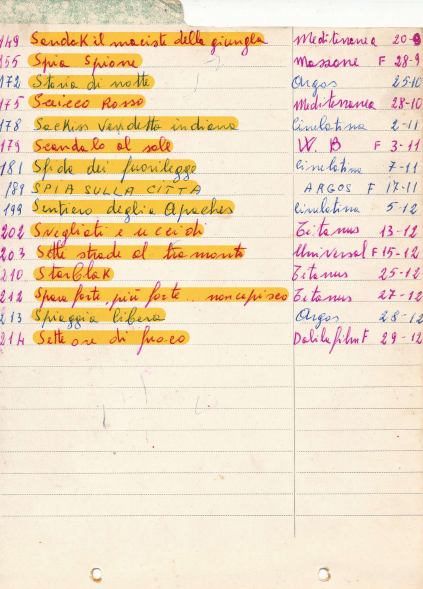 149 Sandok il maciste della giungla Mediterranea 20-9
155 Spia Spione Massone F 28-9
172 Storia di notte Argos 25-10
175 Sceicco Rosso Mediterranea 28-10
178 Sackiss vendetta indiana Cinelatina 2-11
179 Scandalo al sole W. B F 3-11
181 Sfida dei fuorilegge Cinelatina 7-11
189 SPIA SULLA CITTA ARGOS F 17-11
199 Sentiero deglia Apaches Cinelatina 5-12
202 Svegliati e uccidi Titanus 13-12
203 Sette strade al tramonto Universal F 15-12
210 StarBlak Titanus 25-12
212 Spara forte, più forte.. non capisco Titanus 27-12
213 Spiaggia libera Argos 28-12
214 Sette ore di fuoco Dalilafilm F 29-12